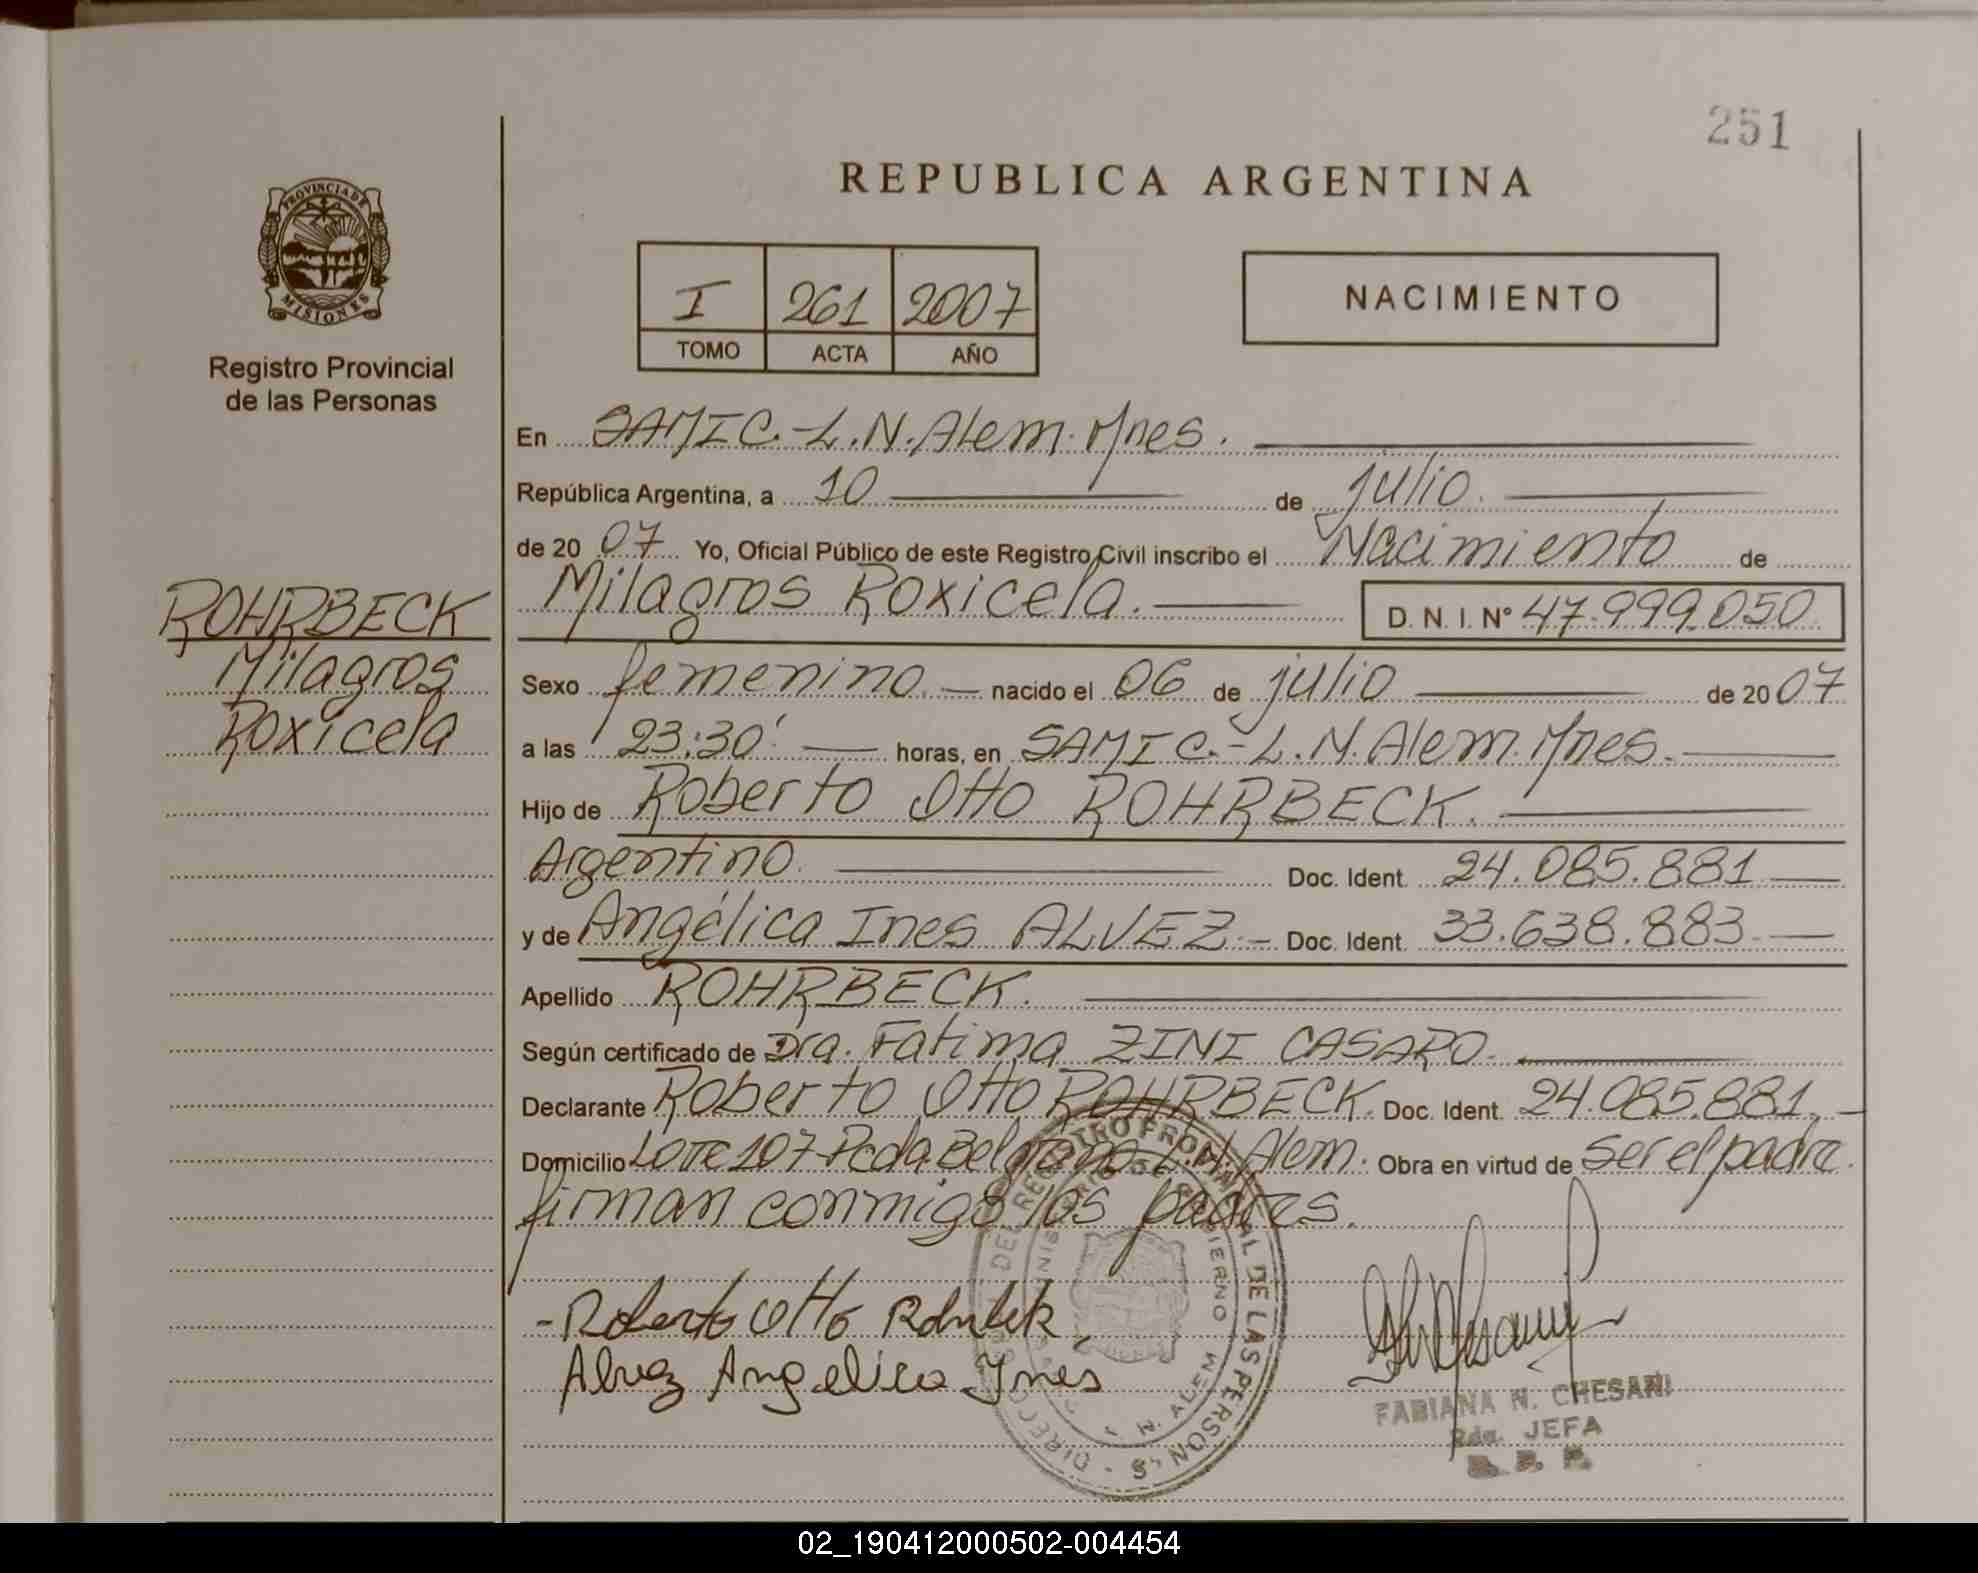 251
REPUBLICA ARGENTINA
PROVINCIA DE
MISIONES
Registro Provincial
de las Personas
I 261 2007
TOMO ACTA AÑO
NACIMIENTO
En SAMIC.-L.N.Alem.Mnes.
República Argentina, a 10 de julio.
de 20 07 Yo, Oficial Público de este Registro Civil inscribo el Nacimiento de
Milagros Roxicela. D. N. I. N° 47.999.050
ROHRBECK
Milagros
Roxicela
Sexo femenino. nacido el 06 de julio de 20 07
a las 23:30' horas, en SAMIC.-L.N.Alem.Mnes.
Hijo de Roberto Otto ROHRBECK.
Argentino. Doc. Ident. 24.085.881
y de Angélica Ines ALVEZ.- Doc. Ident. 33.638.883.
Apellido ROHRBECK.
Según certificado de Dra. Fatima ZINI CASARO.
Declarante Roberto Otto ROHRBECK. Doc. Ident. 24.085.881.
Domicilio Lote 107-Pcda.Belgrano-L.N.Alem. Obra en virtud de ser el padre.
firman conmigo los padres.
-Roberto Otto Rohrbek
Alvez Angelica Ynes
FABIANA N. CHESANI
JEFA
02_190412000502-004454